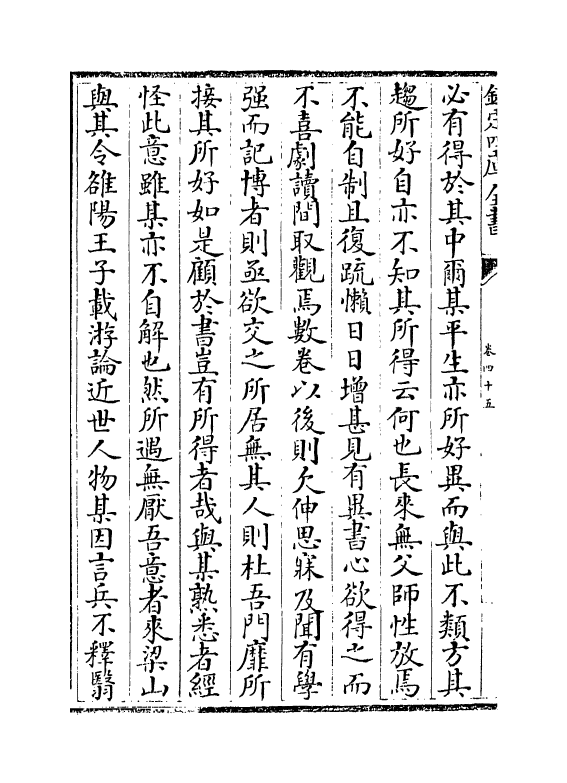 欽定四庫全書
卷四十五
必有得於其中爾某平生亦所好異而與此不類方其
趨所好自亦不知其所得云何也長來無父師性放焉
不能自制且復疏懶日日增甚見有異書心欲得之而
不喜劇讀間取觀焉數卷以後則欠伸思寐及聞有學
强而記博者則亟欲交之所居無其人則杜吾門靡所
接其所好如是顧於書豈有所得者哉與某熟悉者經
怪此意雖某亦不自解也然所遇無厭吾意者來梁山
與其令雒陽王子載游論近世人物某因言兵不釋翳